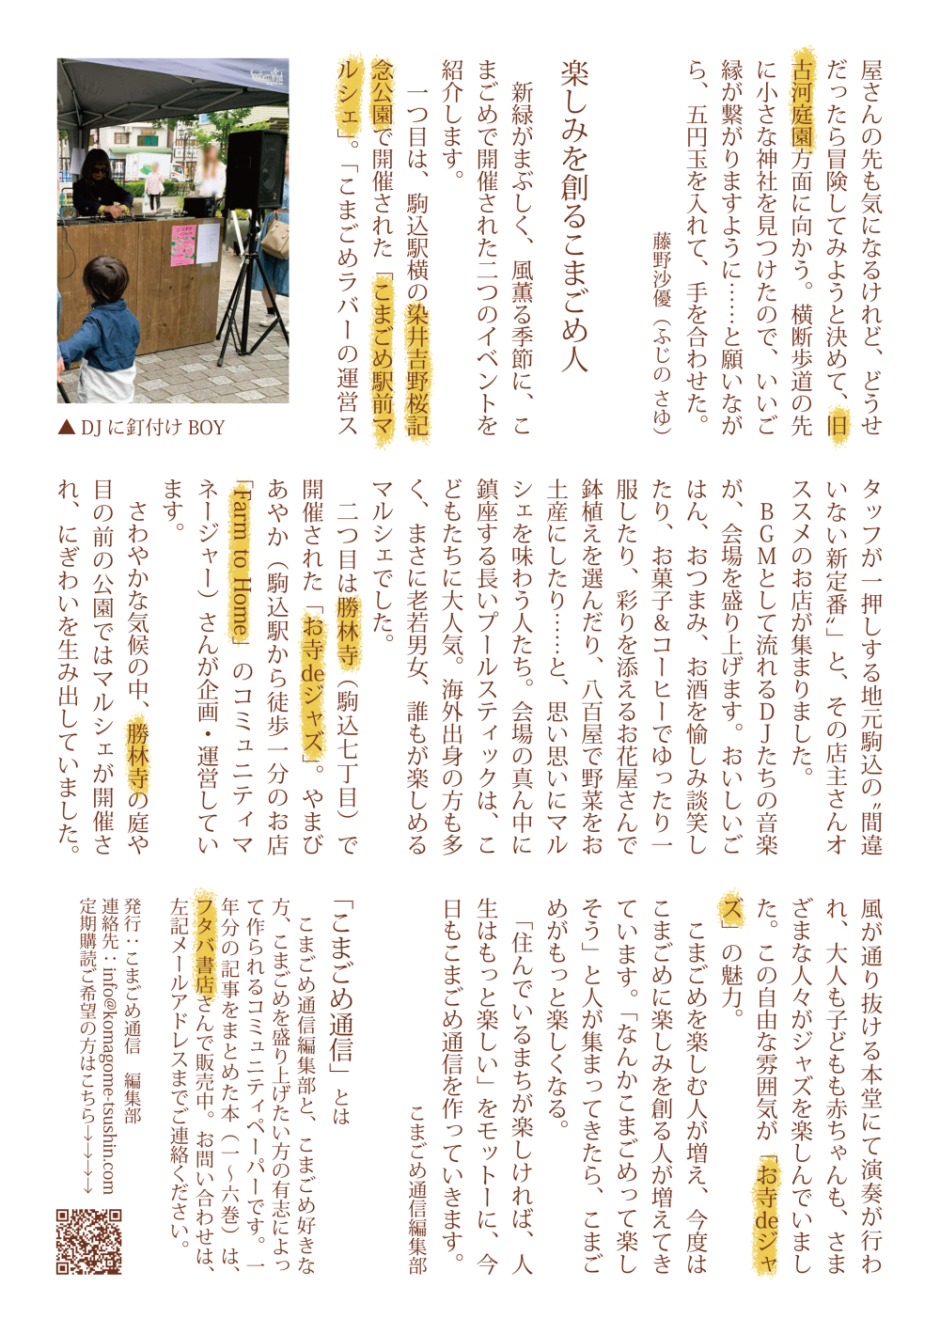 屋さんの先も気になるけれど、どうせ
だったら冒険してみようと決めて、旧
古河庭園方面に向かう。横断歩道の先
に小さな神社を見つけたので、いいご
縁が繋がりますように……と願いなが
ら、五円玉を入れて、手を合わせた。
藤野沙優（ふじの さゆ）
楽しみを創るこまごめ人
新緑がまぶしく、風薫る季節に、こ
まごめで開催された二つのイベントを
紹介します。
一つ目は、駒込駅横の染井吉野桜記
念公園で開催された「こまごめ駅前マ
ルシェ」。「こまごめラバーの運営ス
▲DJに釘付けBOY
タッフが一押しする地元駒込の〝間違
いない新定番〟」と、その店主さんオ
ススメのお店が集まりました。
BGMとして流れるDJたちの音楽
が、会場を盛り上げます。おいしいご
はん、おつまみ、お酒を愉しみ談笑し
たり、お菓子＆コーヒーでゆったり一
服したり、彩りを添えるお花屋さんで
鉢植えを選んだり、八百屋で野菜をお
土産にしたり……と、思い思いにマル
シェを味わう人たち。会場の真ん中に
鎮座する長いプールスティックは、こ
どもたちに大人気。海外出身の方も多
く、まさに老若男女、誰もが楽しめる
マルシェでした。
二つ目は勝林寺（駒込七丁目）で
開催された「お寺deジャズ」。やまび
あやか（駒込駅から徒歩一分のお店
「Farm to Home」のコミュニティマ
ネージャー）さんが企画・運営してい
ます。
さわやかな気候の中、勝林寺の庭や
目の前の公園ではマルシェが開催さ
れ、にぎわいを生み出していました。
風が通り抜ける本堂にて演奏が行わ
れ、大人も子どもも赤ちゃんも、さま
ざまな人々がジャズを楽しんでいまし
た。この自由な雰囲気が「お寺deジャ
ズ」の魅力。
こまごめを楽しむ人が増え、今度は
こまごめに楽しみを創る人が増えてき
ています。「なんかこまごめって楽し
そう」と人が集まってきたら、こまご
めがもっと楽しくなる。
「住んでいるまちが楽しければ、人
生はもっと楽しい」をモットーに、今
日もこまごめ通信を作っていきます。
こまごめ通信編集部
「こまごめ通信」とは
こまごめ通信編集部と、こまごめ好きな
方、こまごめを盛り上げたい方の有志によっ
て作られるコミュニティペーパーです。一
年分の記事をまとめた本（一～六巻）は、
フタバ書店さんで販売中。お問い合わせは、
左記メールアドレスまでご連絡ください。
発行：こまごめ通信　編集部
連絡先：info@komagome-tsushin.com
定期購読ご希望の方はこちら→→→→→